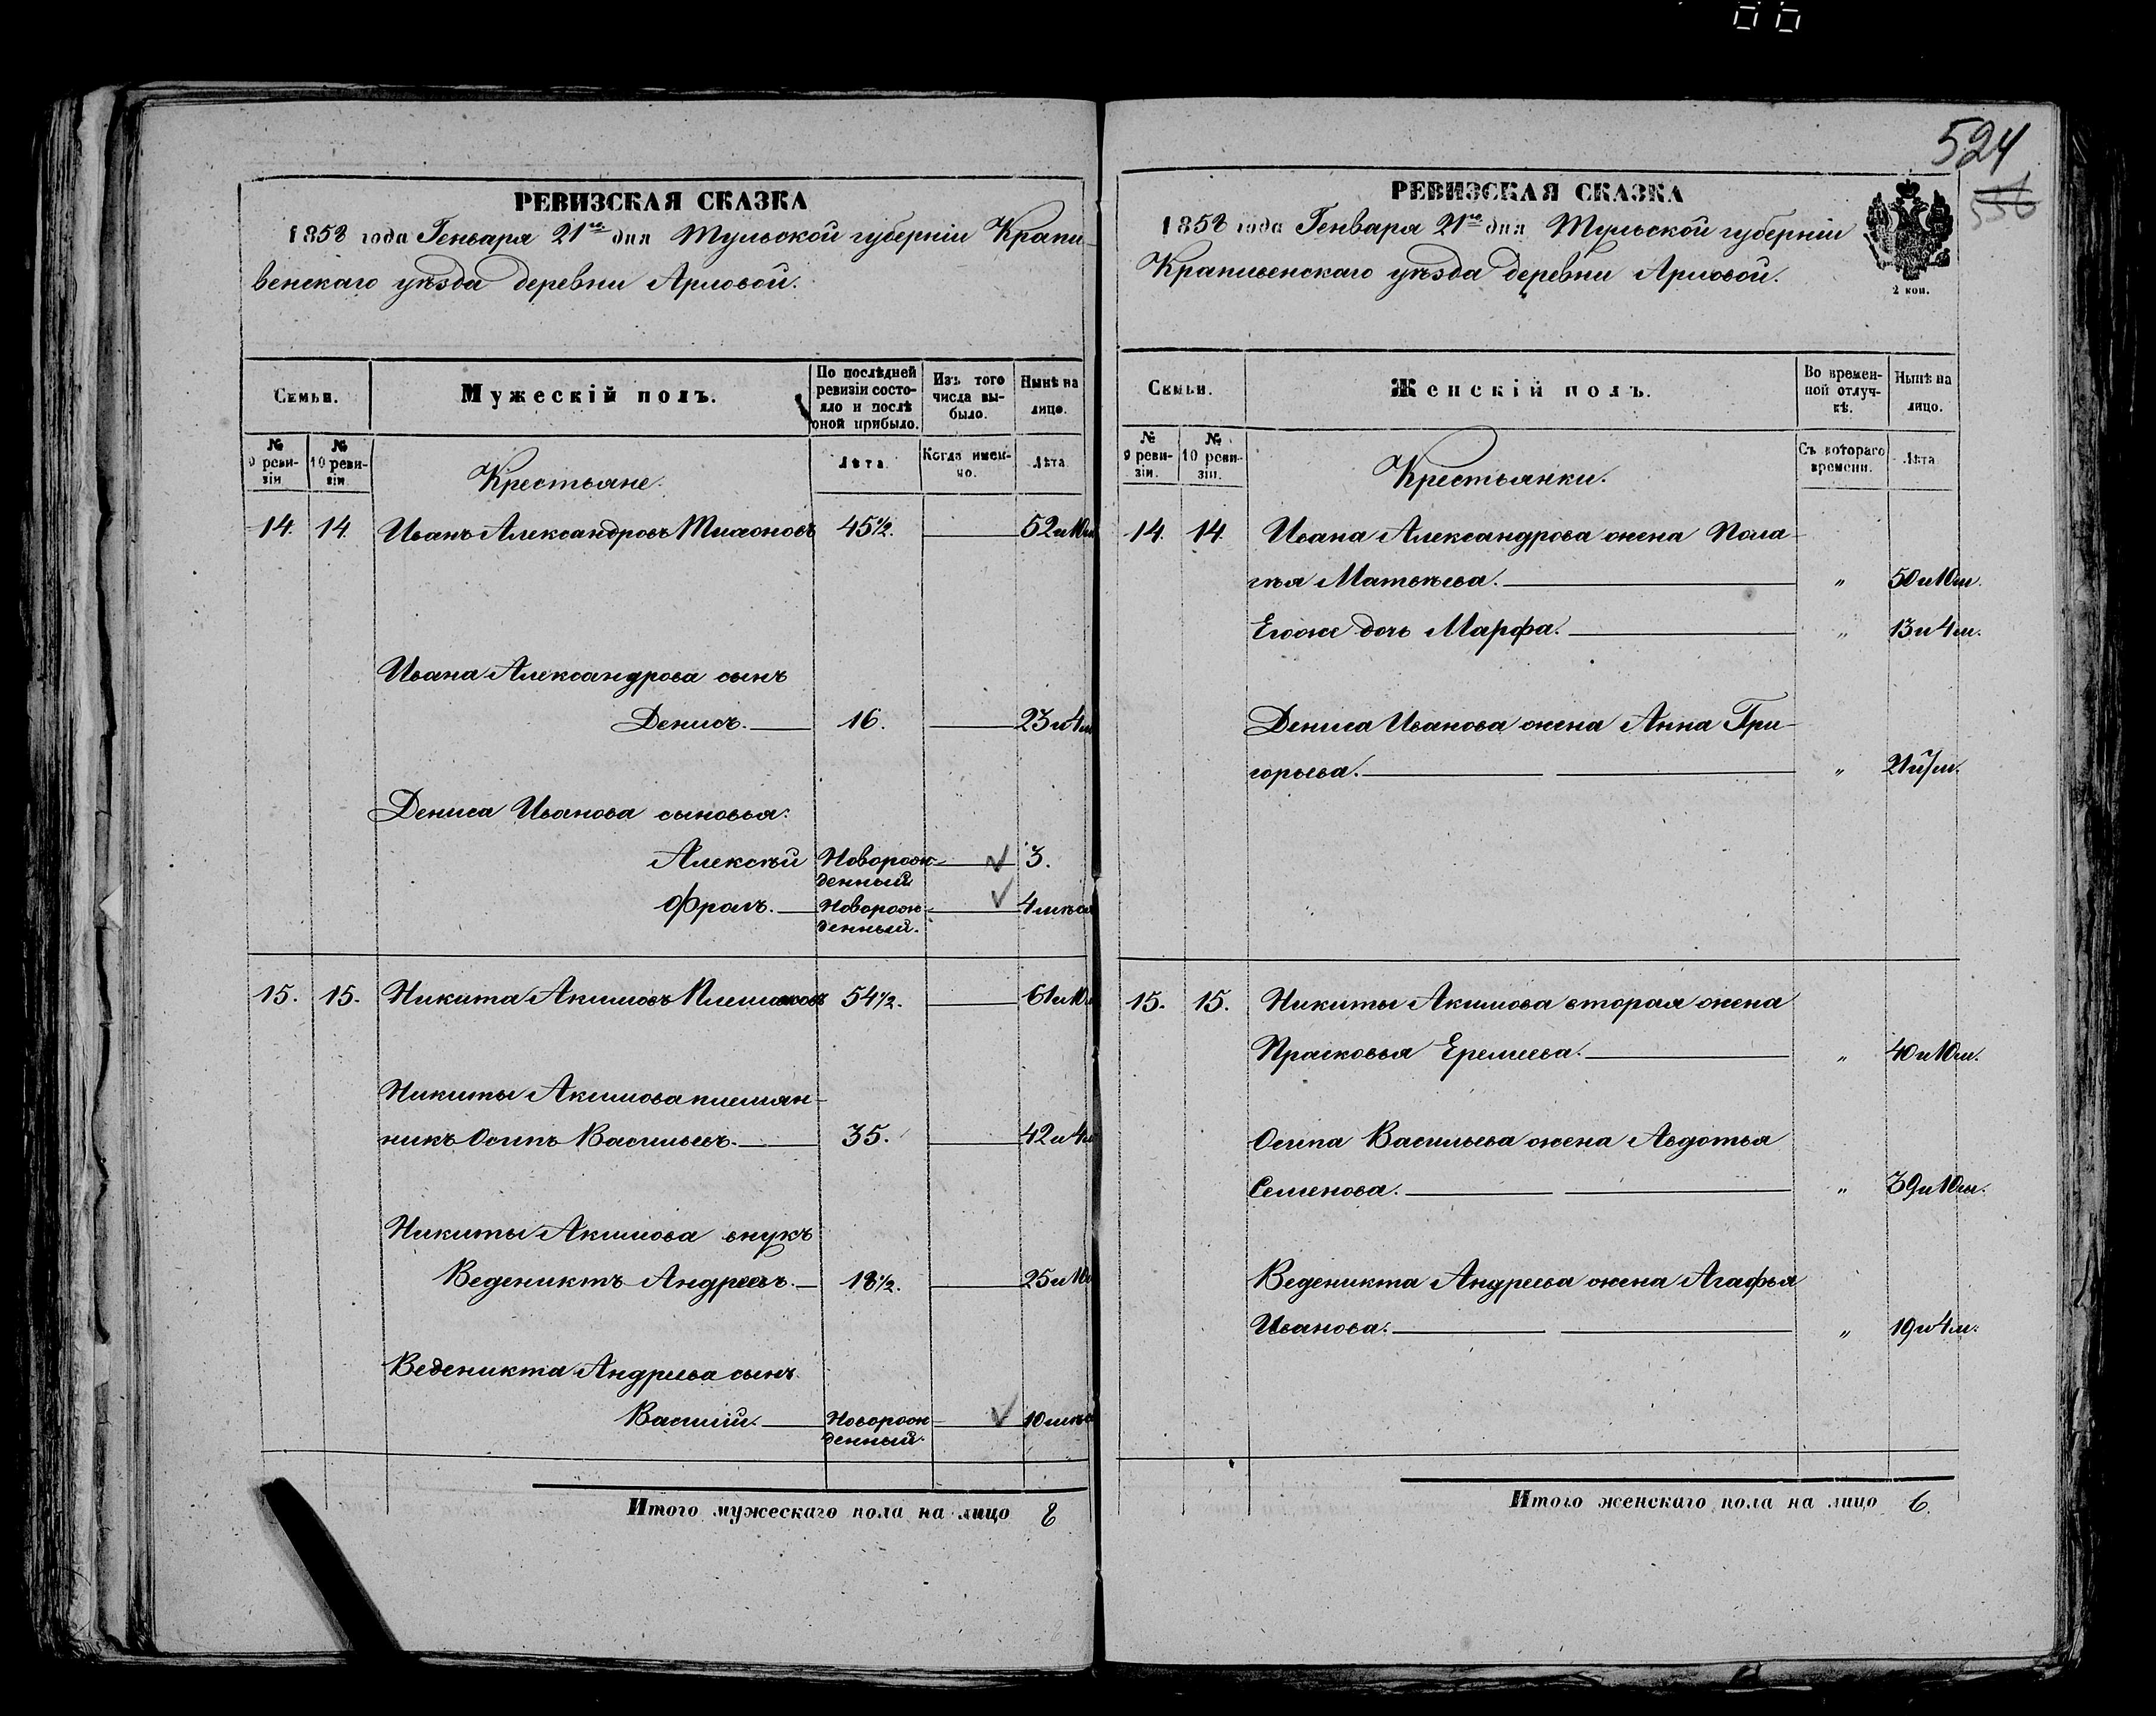 РЕВИЗСКАЯ СКАЗКА
1858 года Генваря 21го дня Тульской губерніи Крапи-
венскаго уѣзда деревни Арловой.
Семьи.
Мужескій полъ.
По послѣдней ревизіи состояло и послѣ оной прибыло.
Изъ того числа выбыло.
Нынѣ на лицо.
№ 9 ревизіи
№ 10 ревизіи.
Крестьяне.
Лѣта
Когда именно.
Лѣта
14. 14. Иванъ Александровъ Тихоновъ 45½. 52 и 10 м
Ивана Александрова сынъ
Денисъ. 16. 23 и 4 м
Дениса Иванова сыновья:
Алексѣй Новорож- 3.
денный
Фролъ. Новорож- 4 мѣся
денный.
15. 15. Никита Акимовъ 54½. 61 и 10
Никиты Акимова племян-
никъ Осипъ Васильевъ. 35. 42 и 4
Никиты Акимова внукъ
Веденихтъ Андреевъ. 18½. 25 и 10
Веденикта Андреева сынъ
Василій. Новорож- 10 мѣс
денный.
Итого мужескаго пола на лицо 8
524
556
РЕВИЗСКАЯ СКАЗКА
1858 года Генваря 21го дня Тульской губерніи
Крапивенскаго уѣзда деревни Арловой.
2 коп.
Семьи.
Женскій полъ.
Во временной отлучкѣ.
Нынѣ на лицо.
№ 9 ревизіи.
№ 10 ревизіи.
Крестьянки.
Съ котораго времени.
Лѣта
14. 14. Ивана Александрова жена Пола-
гѣя Матвѣева. " 50 и 10 м.
Егоже дочь Марфа. " 13 и 4 м.
Дениса Иванова жена Анна Гри-
горьева. " 21 и 7 м.
15. 15. Никиты Акимова вторая жена
Прасковья Еремеева. " 40 и 10 м.
Осипа Васильева жена Авдотья
Семенова. " 39 и 10 м.
Веденикта Андреева жена Агафья
Иванова. " 19 и 4 м.
Итого женскаго пола на лицо 6.